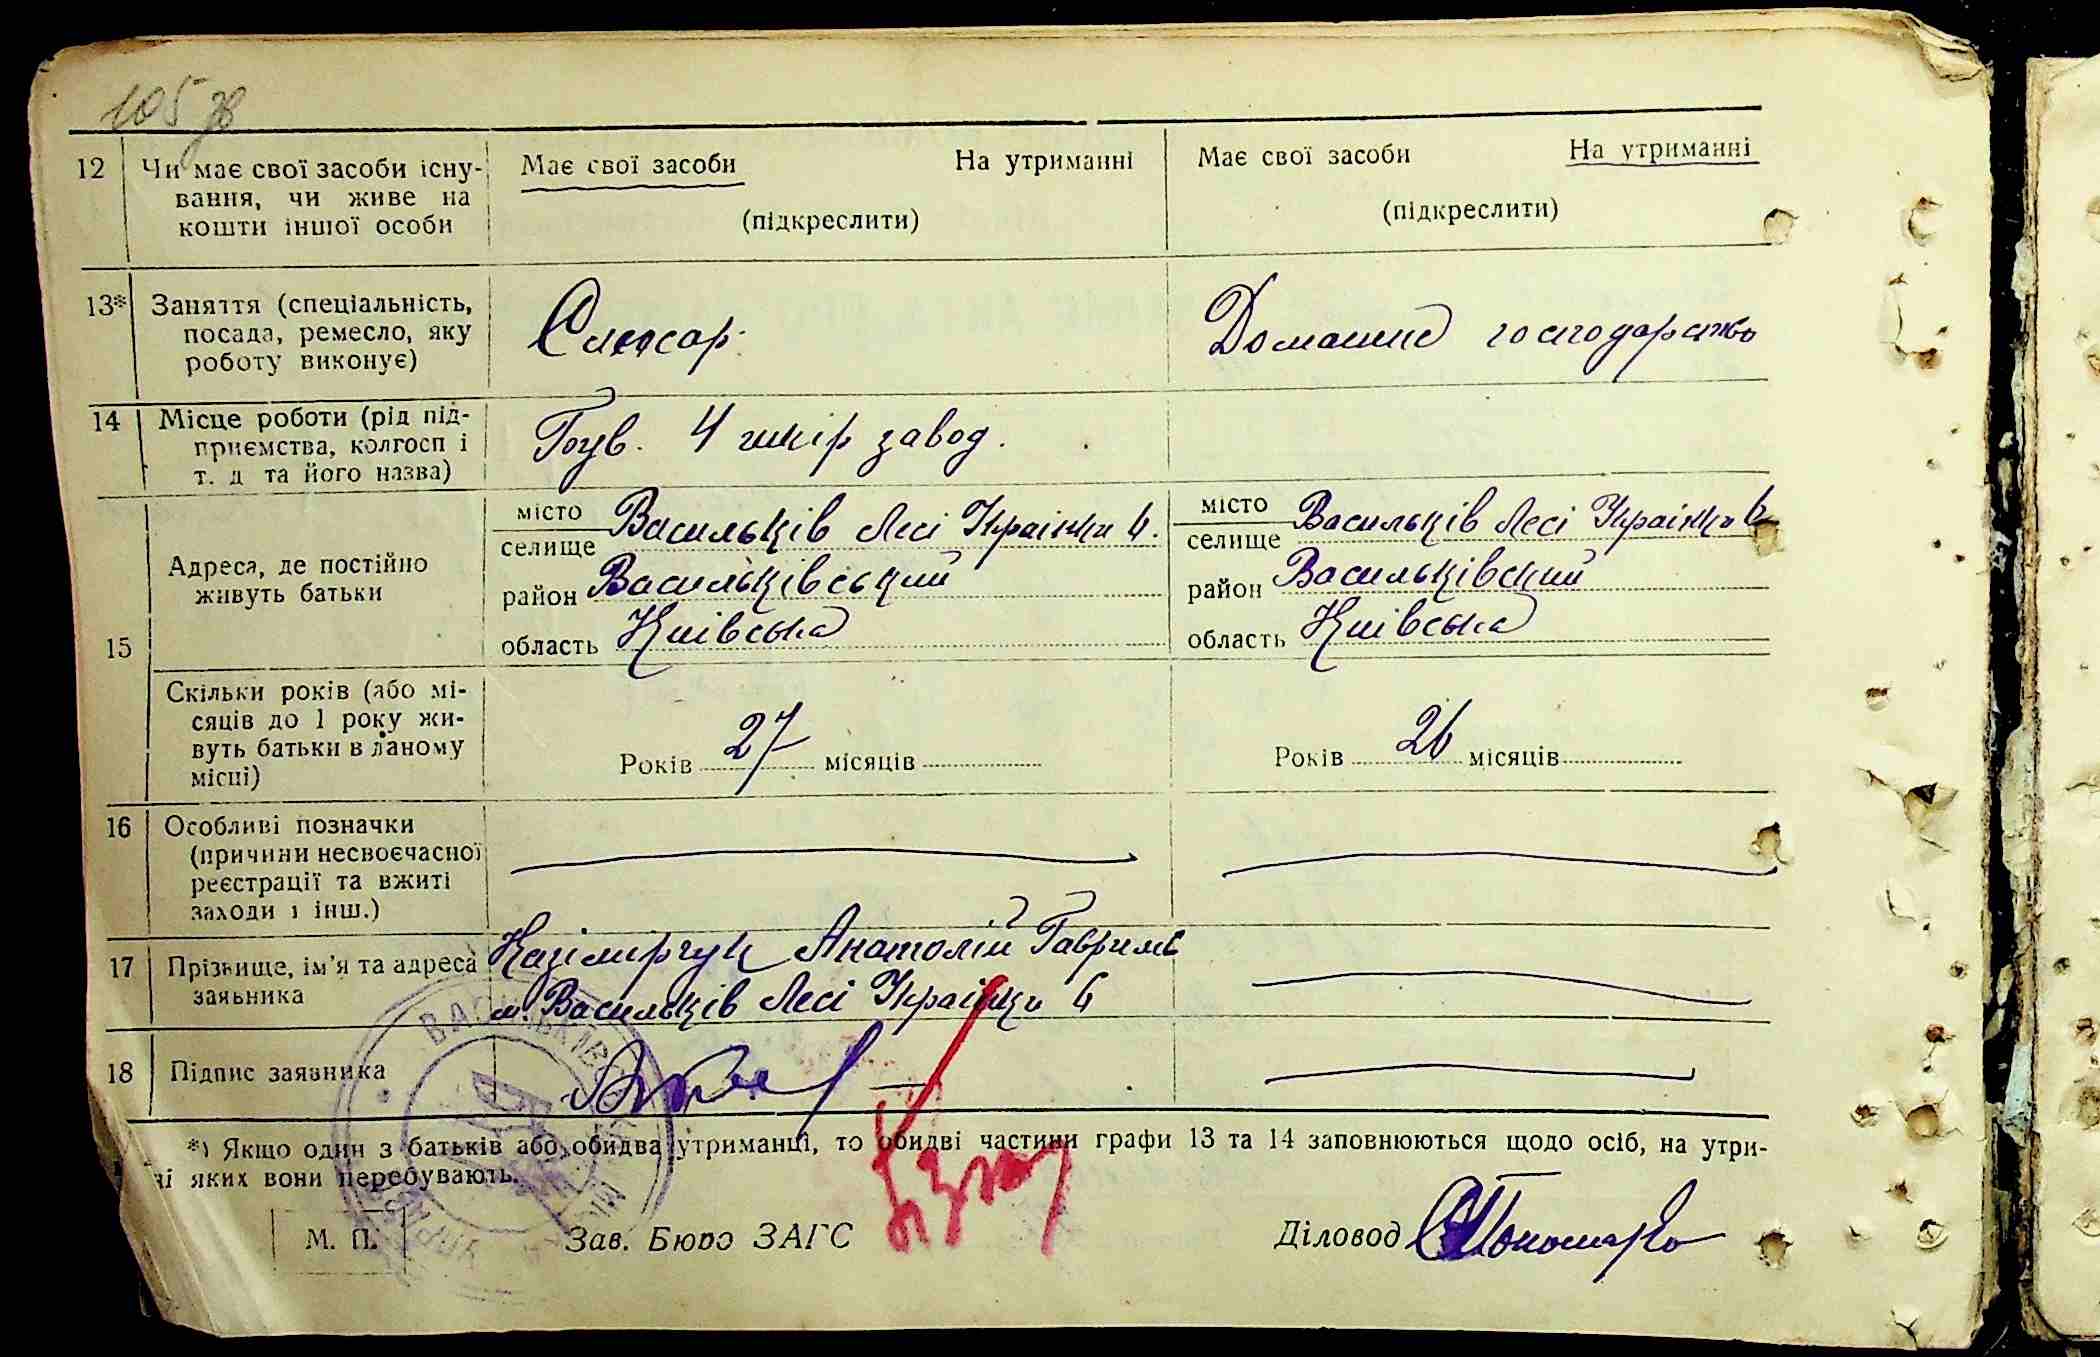 105 зв
12 Чи має свої засоби існу-
вання, чи живе на
кошти іншої особи
Має свої засоби На утриманні
(підкреслити)
Має свої засоби На утриманні
(підкреслити)
13* Заняття (спеціальність,
посада, ремесло, яку
роботу виконує)
Слюсар
Домашнє господарство
14 Місце роботи (рід під-
приємства, колгосп і
т. д та його назва)
4 шкір завод.
15 Адреса, де постійно
живуть батьки
місто Васильків Лесі Українки 6.
селище
район Васильківський
область Київська
місто Васильків Лесі Українки 6
селище
район Васильківский
область Київська
Скільки років (або мі-
сяців до 1 року жи-
вуть батьки в даному
місці)
Років 27 місяців
Років 26 місяців
16 Особливі позначки
(причини несвоєчасної
реєстрації та вжиті
заходи і інш.)
17 Прізвище, ім'я та адреса
заявника
Казімирчук Анатолій Гаврилв
м. Васильків Лесі Українки 6
18 Підпис заявника
*) Якщо один з батьків або обидва утриманці, то обидві частини графи 13 та 14 заповнюються щодо осіб, на утри-
ні яких вони перебувають.
М. П.
Зав. Бюро ЗАГС
Діловод